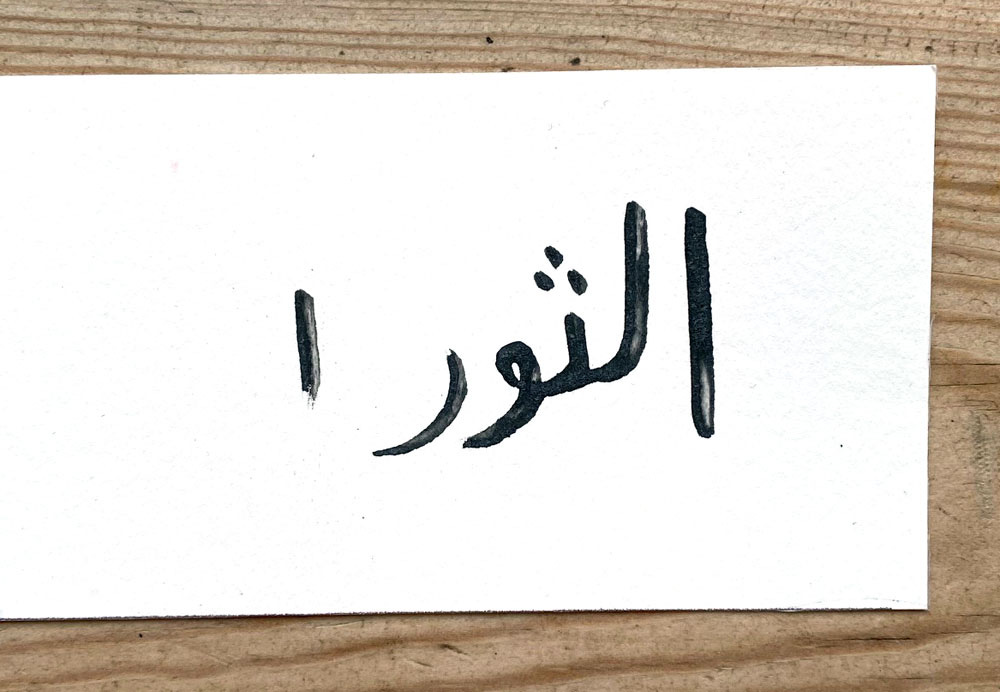 الثور ا